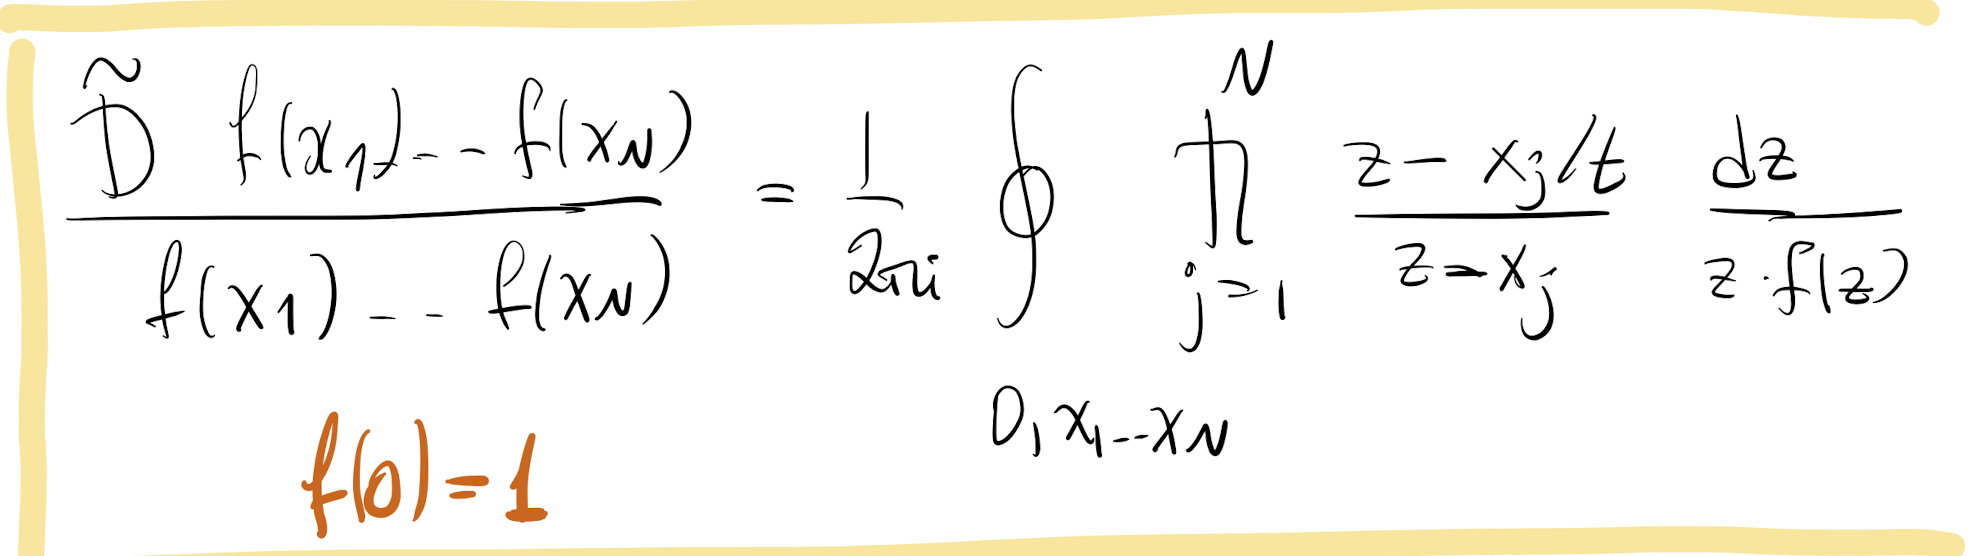 \frac{\tilde{D} f(x_1) -- f(x_N)}{f(x_1) -- f(x_N)} = \frac{1}{2\pi i} \oint_{0, x_1 -- x_N} \prod_{j=1}^{N} \frac{z - x_j/t}{z - x_j} \frac{dz}{z \cdot f(z)}
f(0) = 1